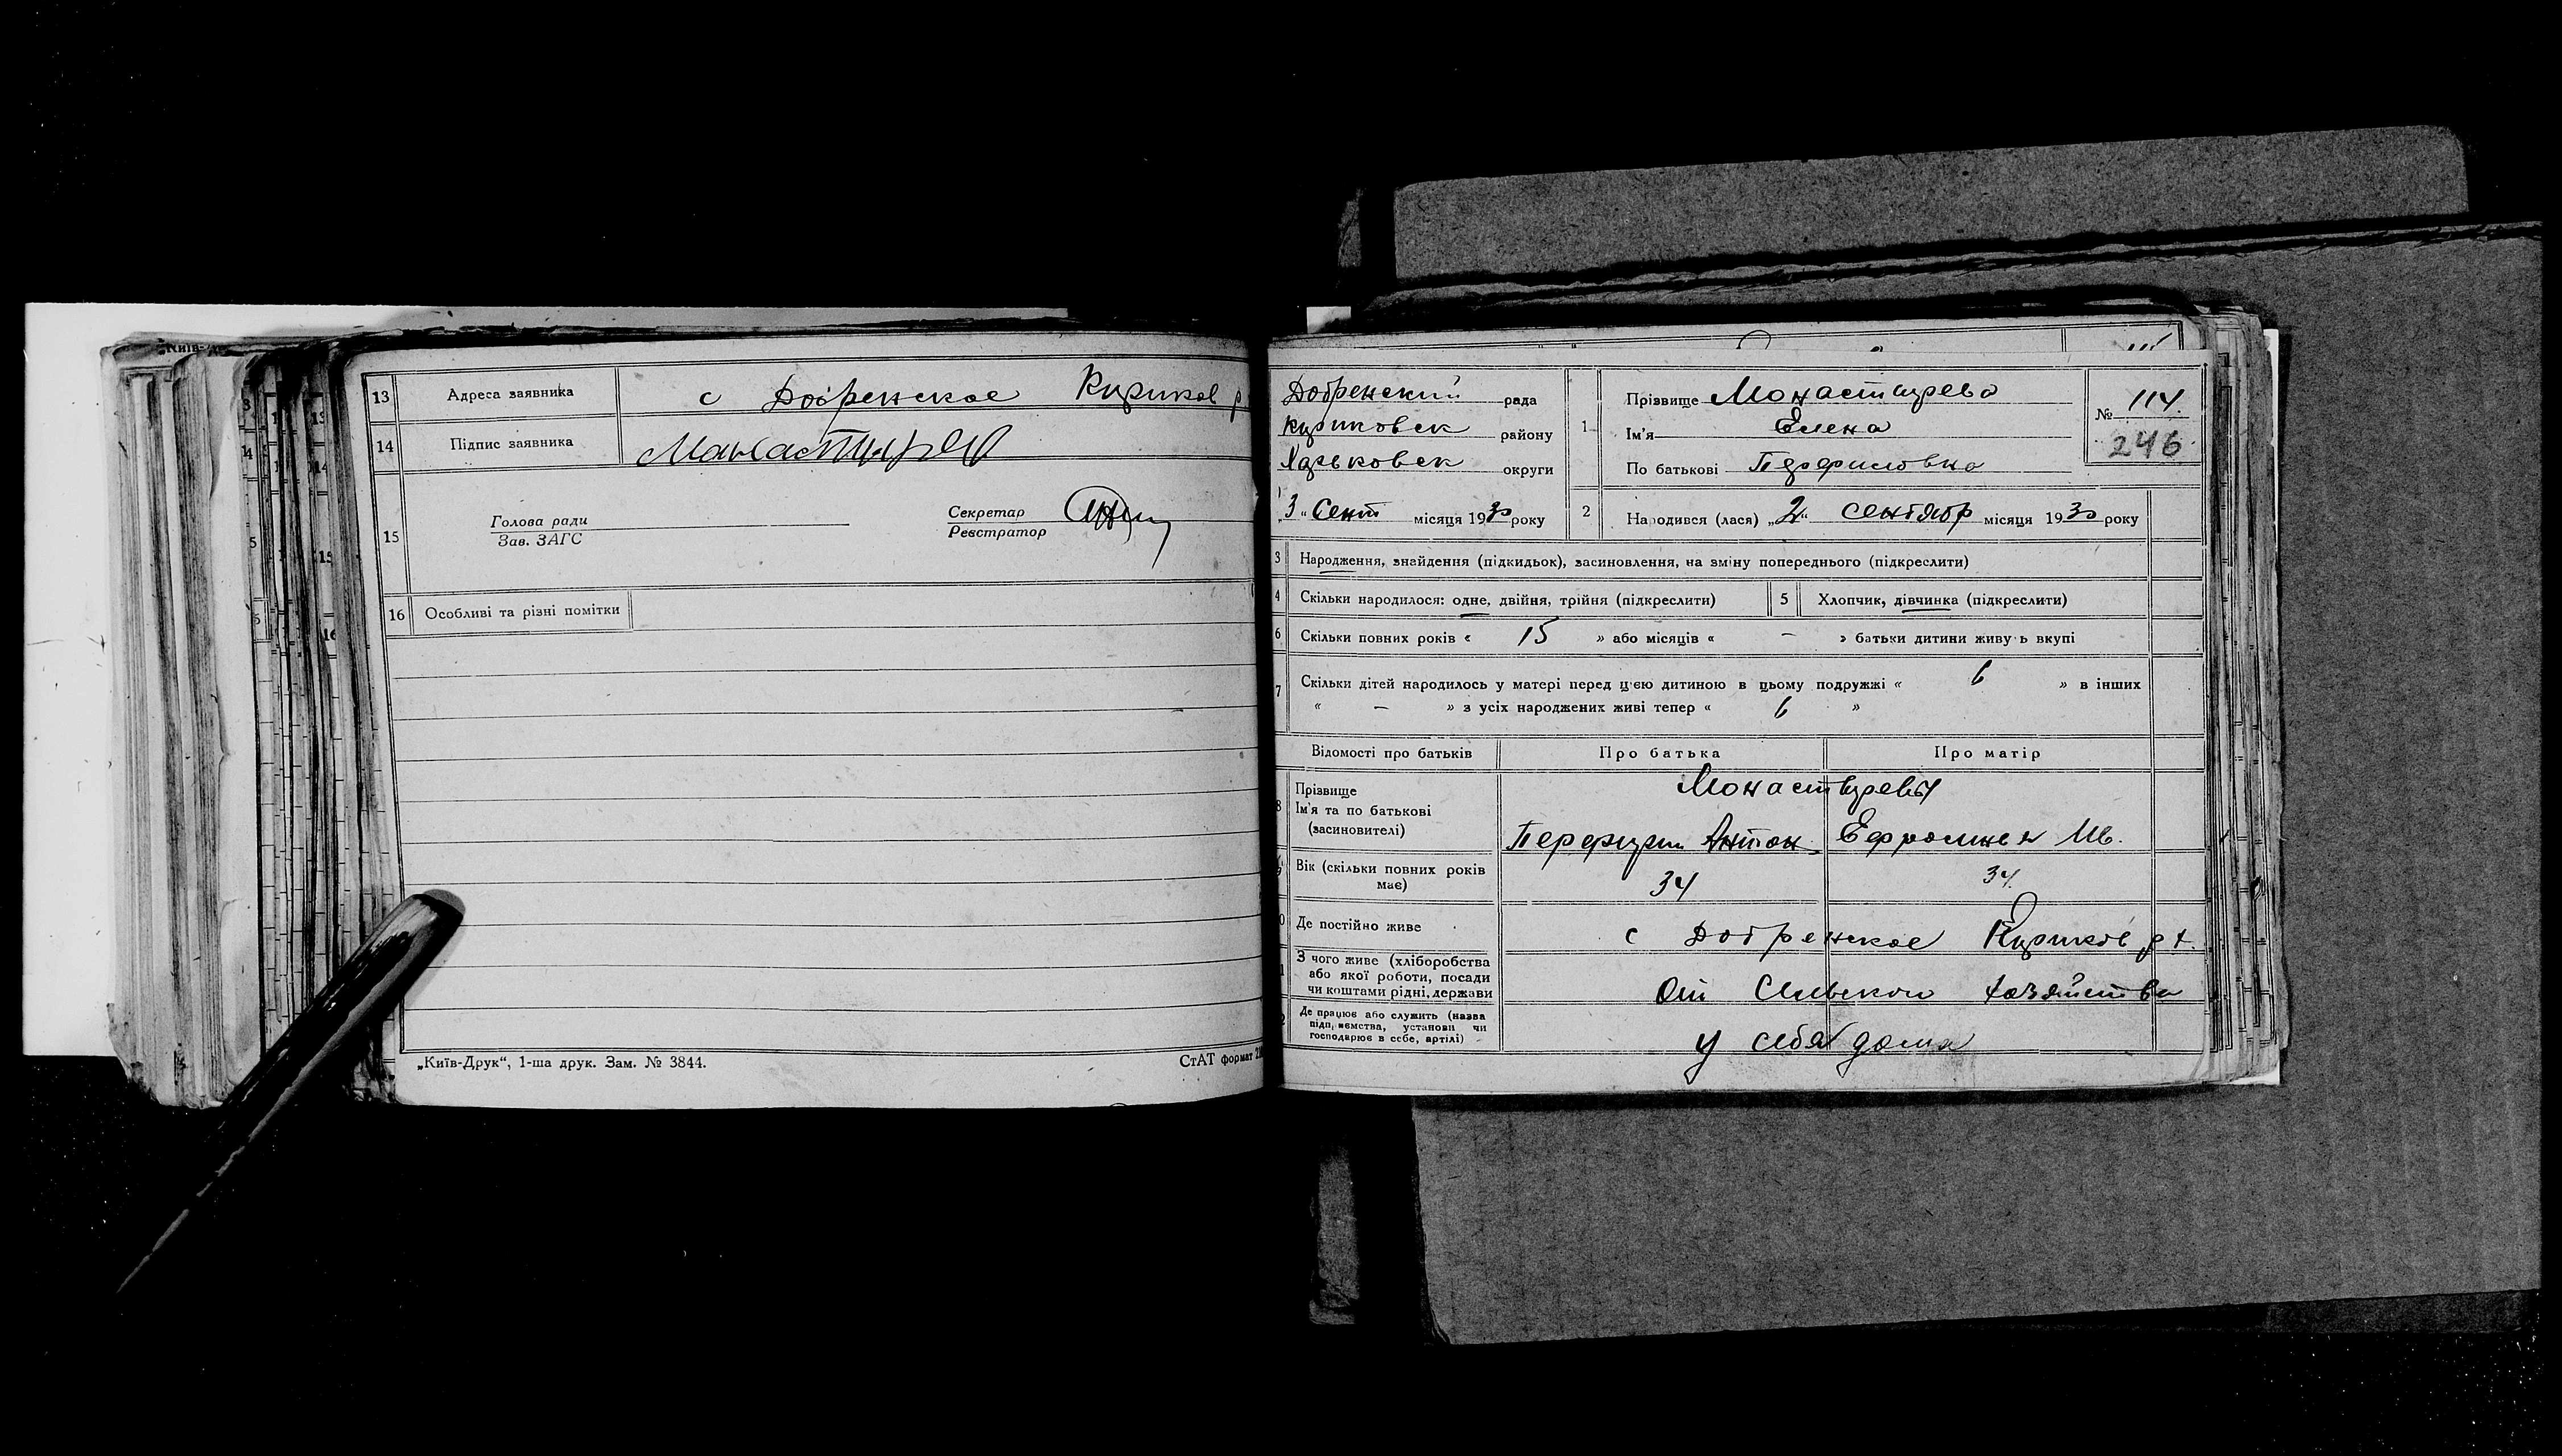 13 Адреса заявника с Добренское Куриков р
14 Підпис заявника Манастирев
15 Голова ради Секретар
Зав. ЗАГС Реєстратор
16 Особливі та різні помітки
„Київ-Друк“, 1-ша друк. Зам. № 3844. СтАТ формат
Добренский рада
район у
Харьковск округи
3 “ Сент місяця 1930 року
1 Прізвище Монастырева
Ім'я Елена
По батькові
№ 114.
246
2 Народився (лася) „2“ сентябр місяця 1930 року
3 Народження, знайдення (підкидьок), засиновлення, на зміну попереднього (підкреслити)
4 Скільки народилося: одне, двійня, трійня (підкреслити) 5 Хлопчик, дівчинка (підкреслити)
6 Скільки повних років « 15 » або місяців « — » батьки дитини живуть вкупі
7 Скільки дітей народилось у матері перед цією дитиною в цьому подружжі « 6 » в інших
« — » з усіх народжених живі тепер « 6 »
Відомості про батьків Про батька Про матір
8 Прізвище Монастыревы
Ім'я та по батькові
(засиновителі) Антон Ефросинья Ив.
Вік (скільки повних років має) 34 34.
Де постійно живе с Добренское
З чого живе (хліборобства
або якої роботи, посади
чи коштами рідні, держави От Сельского хозяйства
Де працює або служить (назва
підприємства, установи чи
господарює в себе, артілі) у себя дома